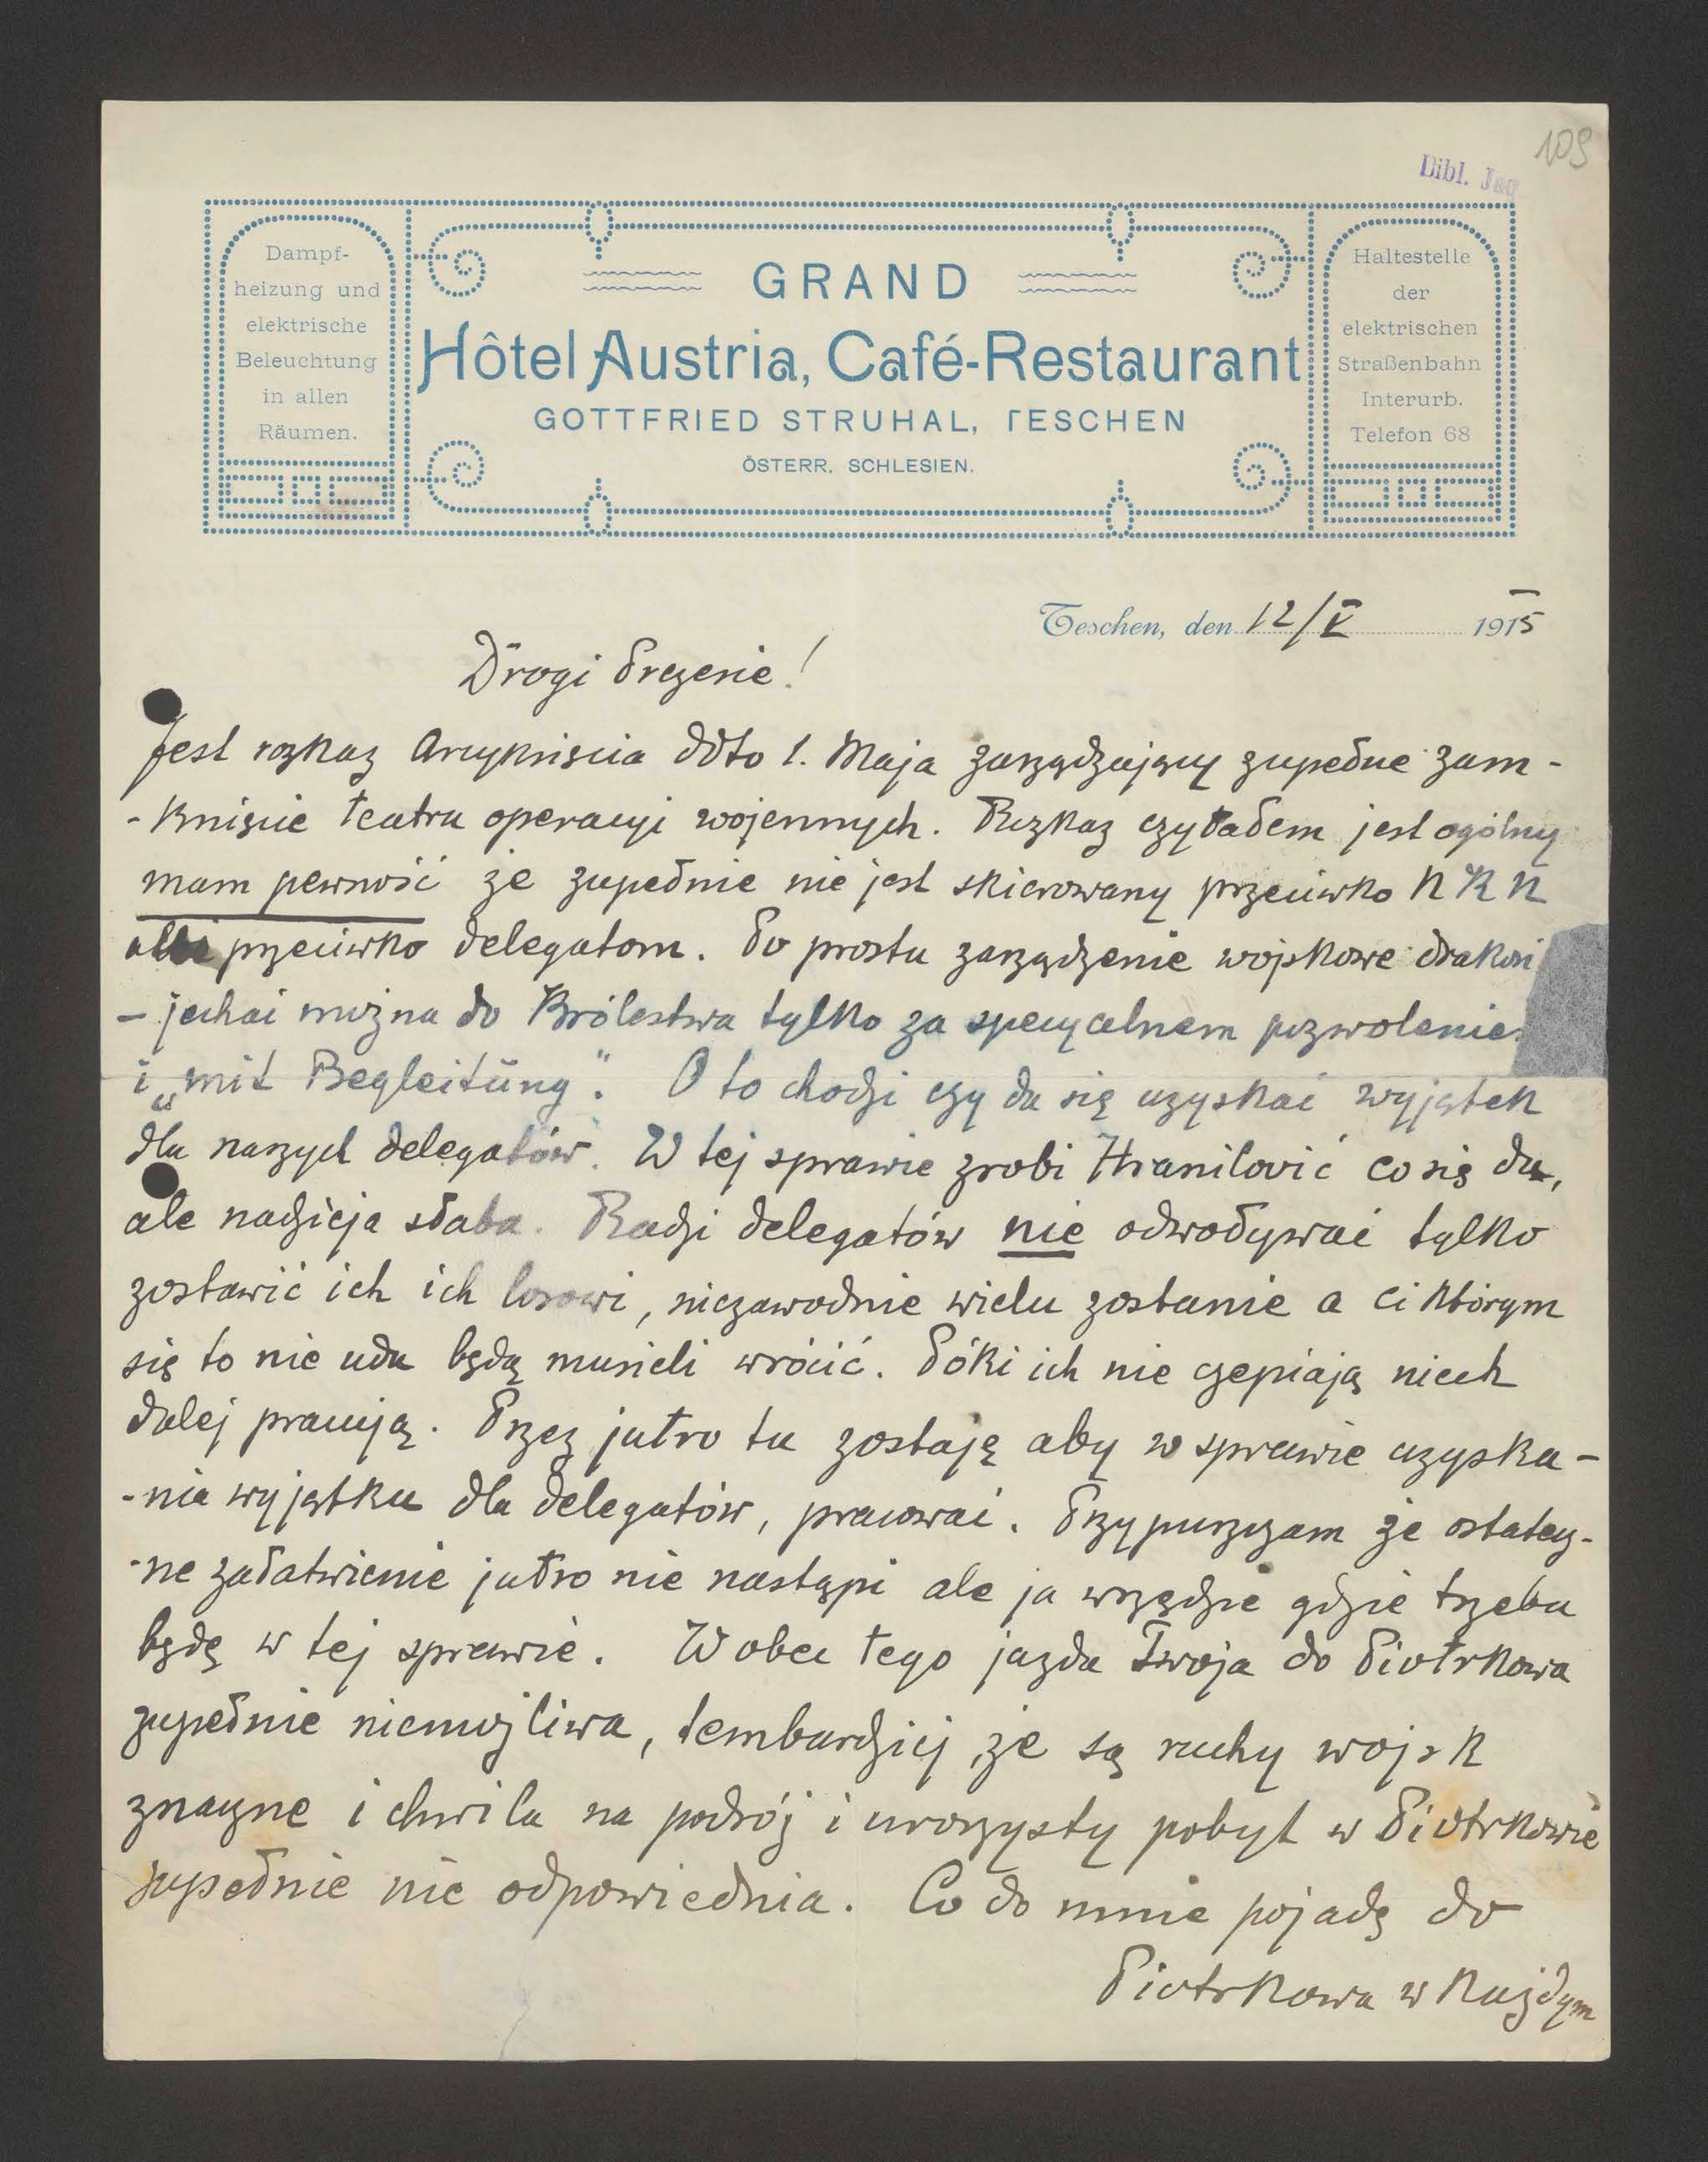 109
Bibl. Jag
Dampf-
heizung und
elektrische
Beleuchtung
in allen
Räumen.
GRAND
Hôtel Austria, Café-Restaurant
GOTTFRIED STRUHAL, TESCHEN
ÖSTERR. SCHLESIEN.
Haltestelle
der
elektrischen
Straßenbahn
Interurb.
Telefon 68
Teschen, den 12/V 1915
Drogi Prezesie!
Jest rozkaz Arcyksięcia ddto 1. Maja zarządzający zupełne zam-
-knięcie teatru operacyi wojennych. Rozkaz czytałem jest ogólny
mam pewność że zupełnie nie jest skierowany przeciwko NKN
przeciwko delegatom. Po prostu zarządzenie wojskowe
– jechać można do Królestwa tylko za specyalnem pozwolenie
i „mit Begleitung". O to chodzi czy da się uzyskać wyjątek
dla naszych delegatów. W tej sprawie zrobi Hranilović co się da,
ale nadzieja słaba. Radzi delegatów nie odwoływać tylko
zostawić ich ich losowi, niezawodnie wielu zostanie a ci którym
się to nie uda będą musieli wrócić. Póki ich nie czepiają niech
dalej pracują. Przez jutro tu zostaję aby w sprawie uzyska-
-nia wyjątku dla delegatów, pracować. Przypuszczam że ostatecz-
-ne załatwienie jutro nie nastąpi ale ja wszędzie gdzie trzeba
będę w tej sprawie. Wobec tego jazda Twoja do Piotrkowa
zupełnie niemożliwa, tembardziej że są ruchy wojsk
znaczne i chwila na podróż i uroczysty pobyt w Piotrkowie
zupełnie nie odpowiednia. Co do mnie pojadę do
Piotrkowa w każdym